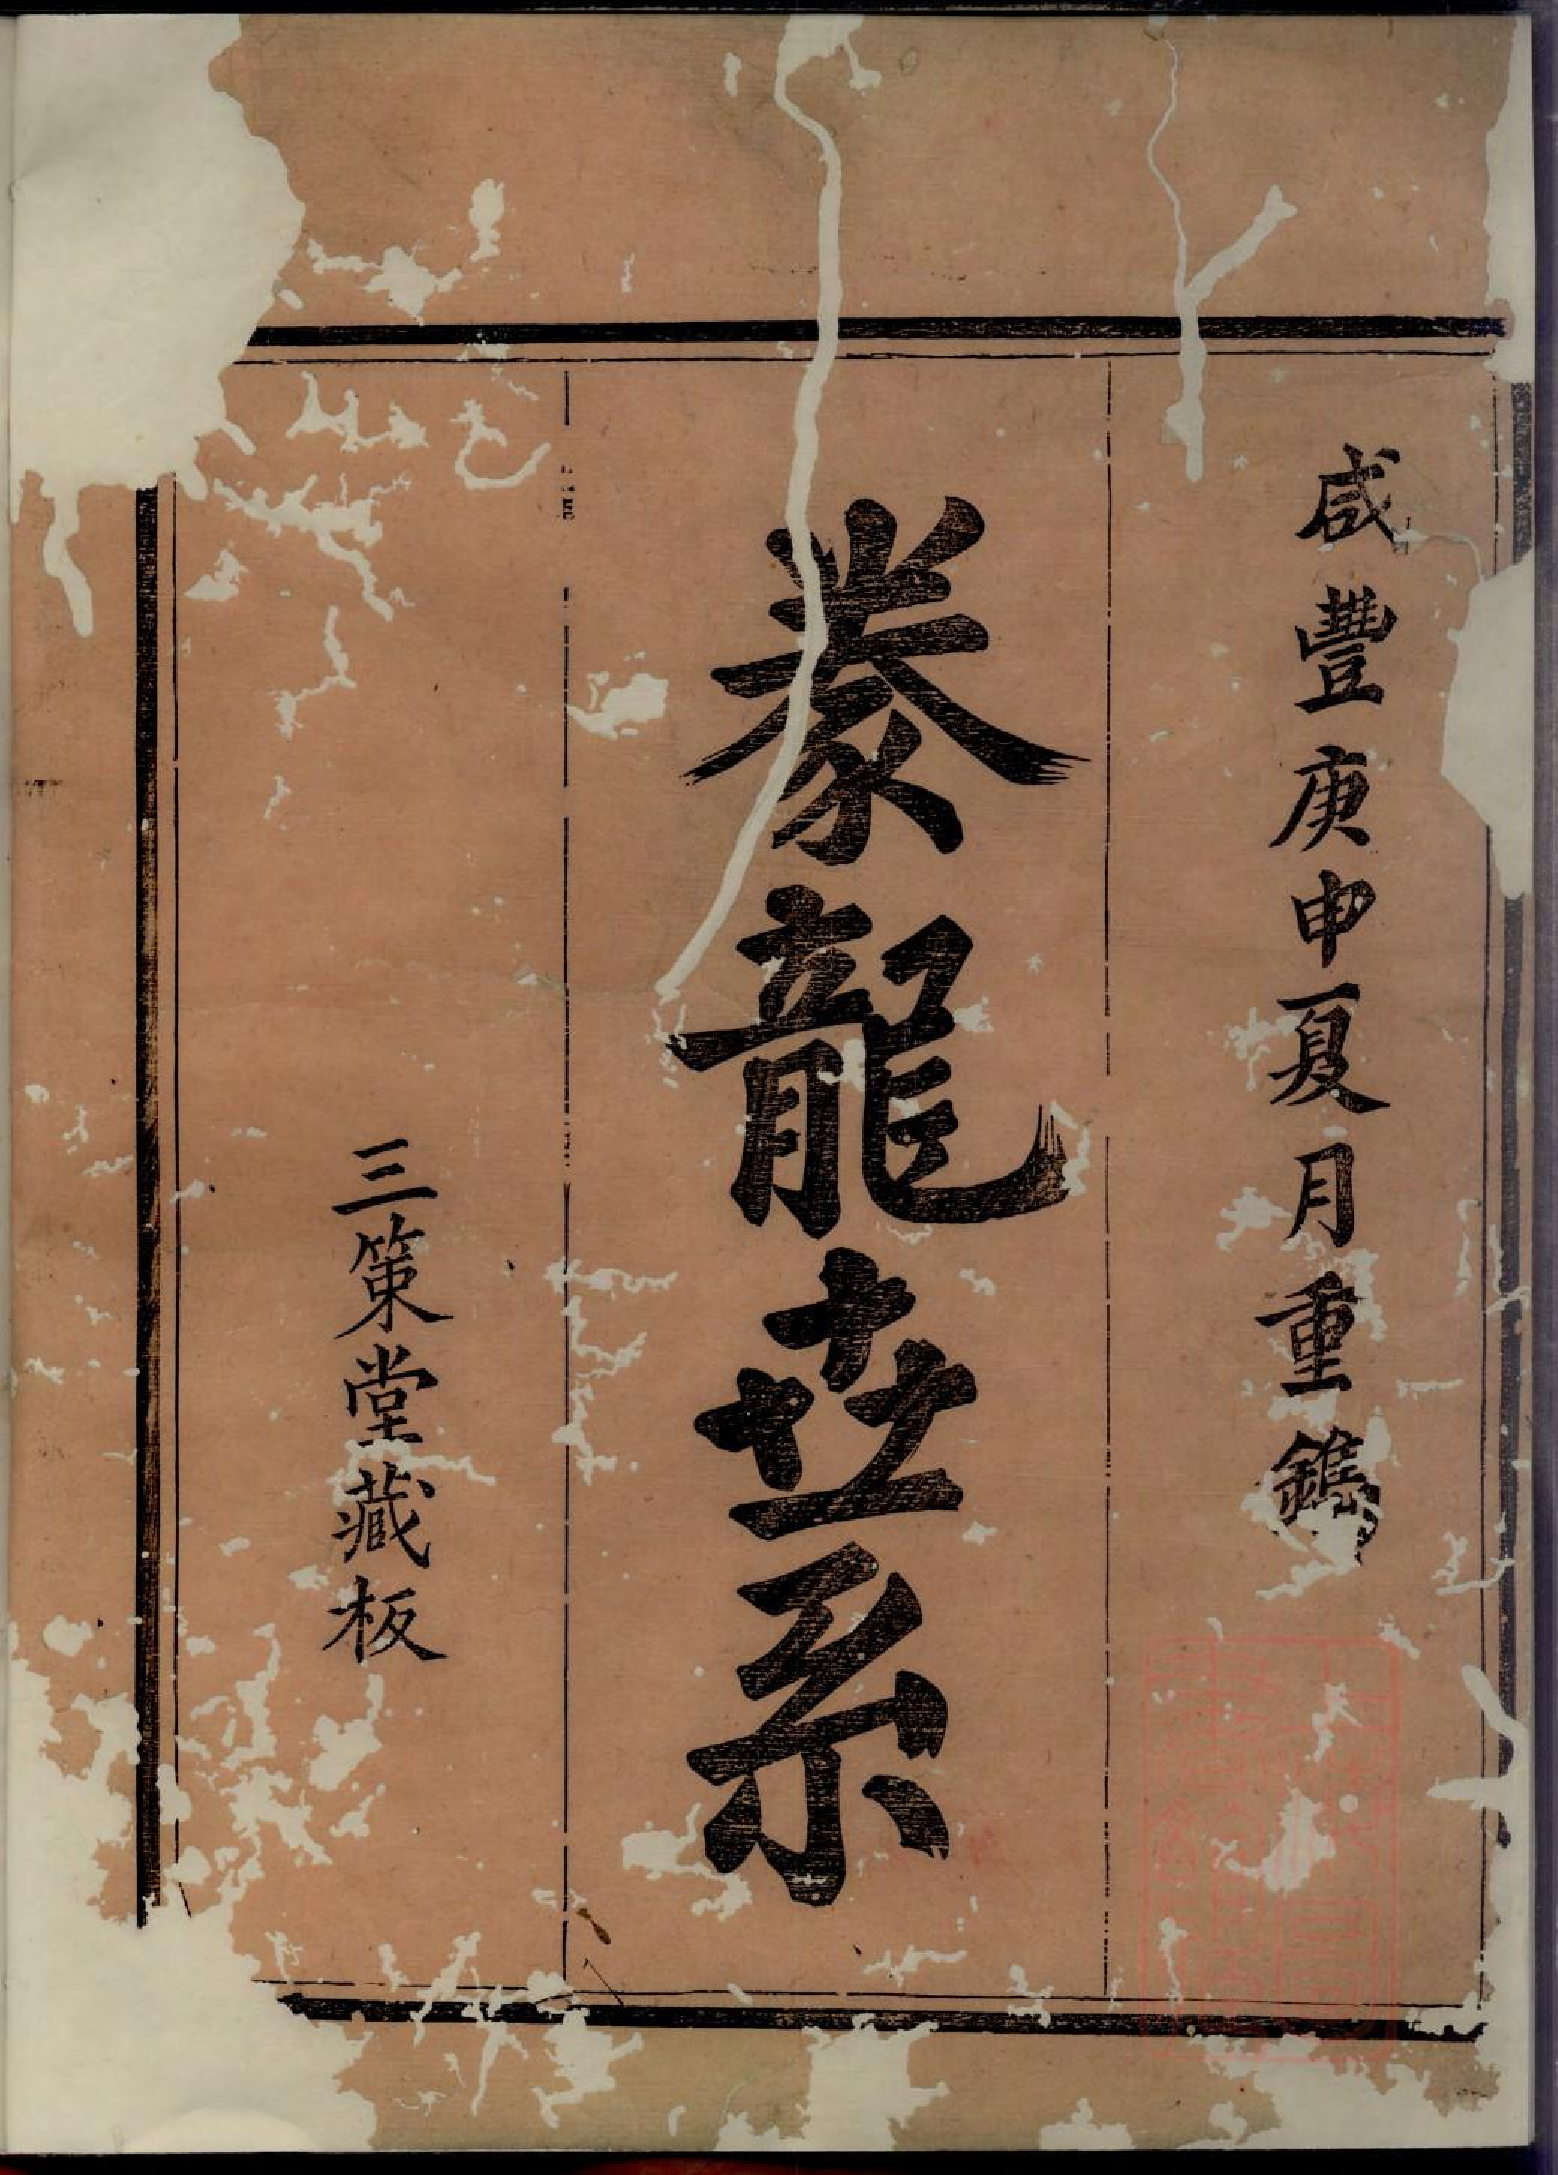 咸豐庚申夏月重鐫
豢龍卋系
三策堂藏板